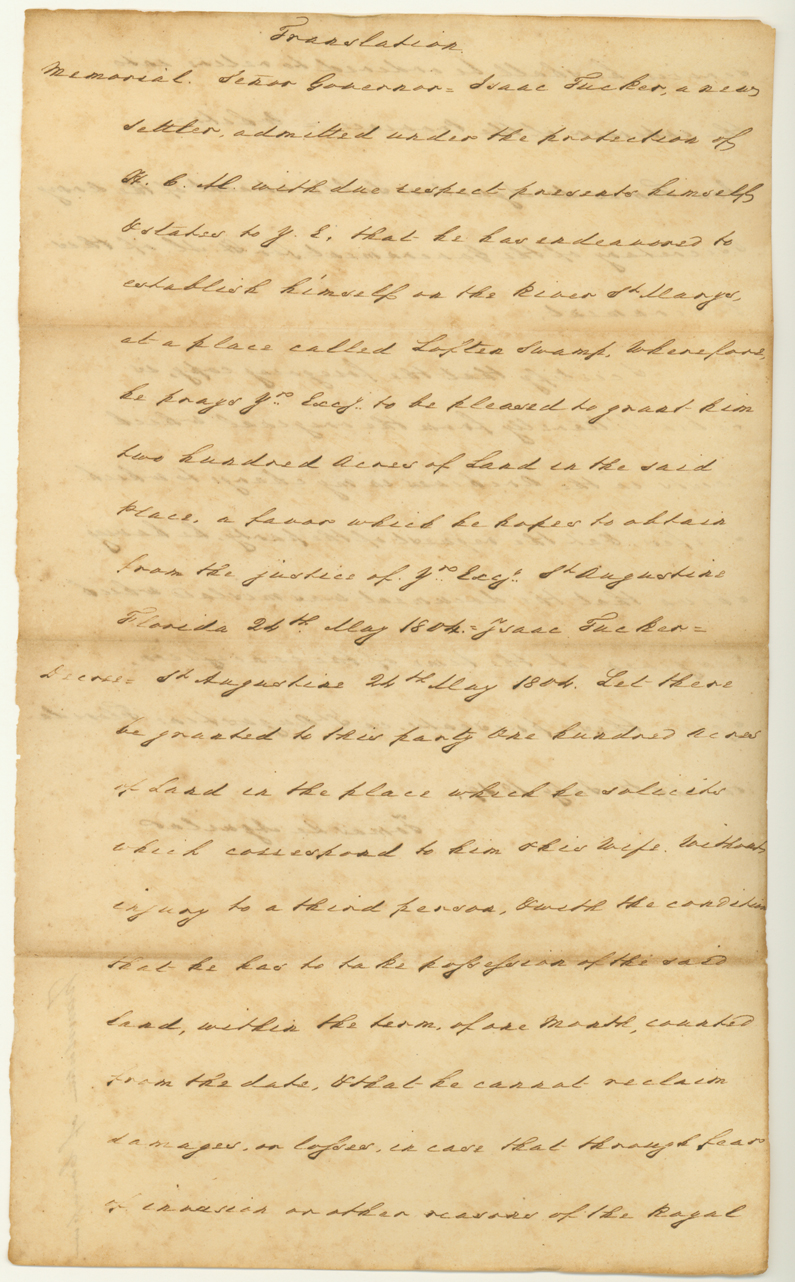 Translation
Memorial. Señor Governor = Isaac Tucker, a new
settler, admitted under the protection of
H. C. M. with due respect presents himself
& states to Y. E. that he has endeavored to
establish himself on the River St. Marys,
at a place called Loften Swamp, Wherefore,
he prays Yr. Excy. to be pleased to grant him
two hundred Acres of Land in the said
Place, a favor which he hopes to obtain
from the justice of Yr. Excy. St Augustine
Florida 24th May 1804. = Isaac Tucker =
Decree = St Augustine 24th May 1804. Let there
be granted to this party One hundred Acres
of Land in the place which he solicits
which correspond to him & his Wife. Without
injury to a third person, & with the condition
that he has to take possession of the said
Land, within the term, of one Month, counted
from the date, & that he cannot reclaim
damages, or losses, in case that through fear
of invasion or other reasons of the Royal